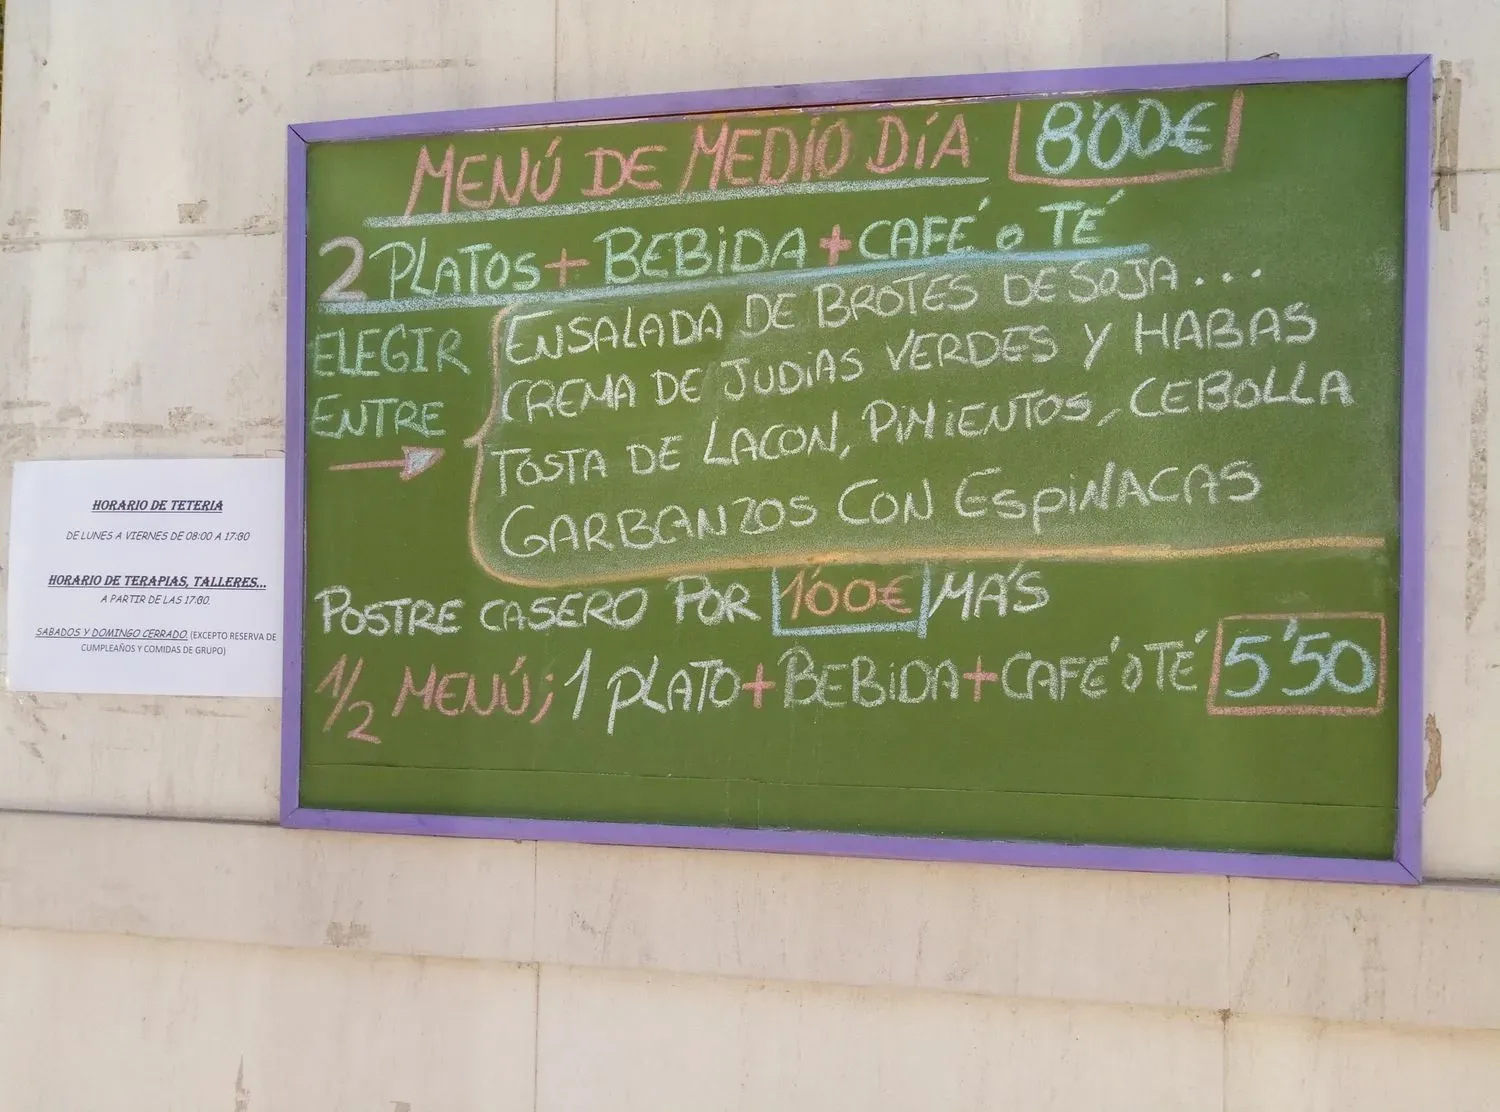 MENÚ DE MEDIO DÍA 8'00€
2 PLATOS + BEBIDA + CAFÉ o TÉ
ELEGIR ENTRE →
ENSALADA DE BROTES DE SOJA...
CREMA DE JUDIAS VERDES Y HABAS
TOSTA DE LACON, PIMIENTOS, CEBOLLA
GARBANZOS CON ESPINACAS
POSTRE CASERO POR 1'00€ MÁS
1/2 MENÚ; 1 PLATO + BEBIDA + CAFÉ O TÉ 5'50
HORARIO DE TETERIA
DE LUNES A VIERNES DE 08:00 A 17:30
HORARIO DE TERAPIAS, TALLERES...
A PARTIR DE LAS 17:30.
SABADOS Y DOMINGO CERRADO (EXCEPTO RESERVA DE
CUMPLEAÑOS Y COMIDAS DE GRUPO)